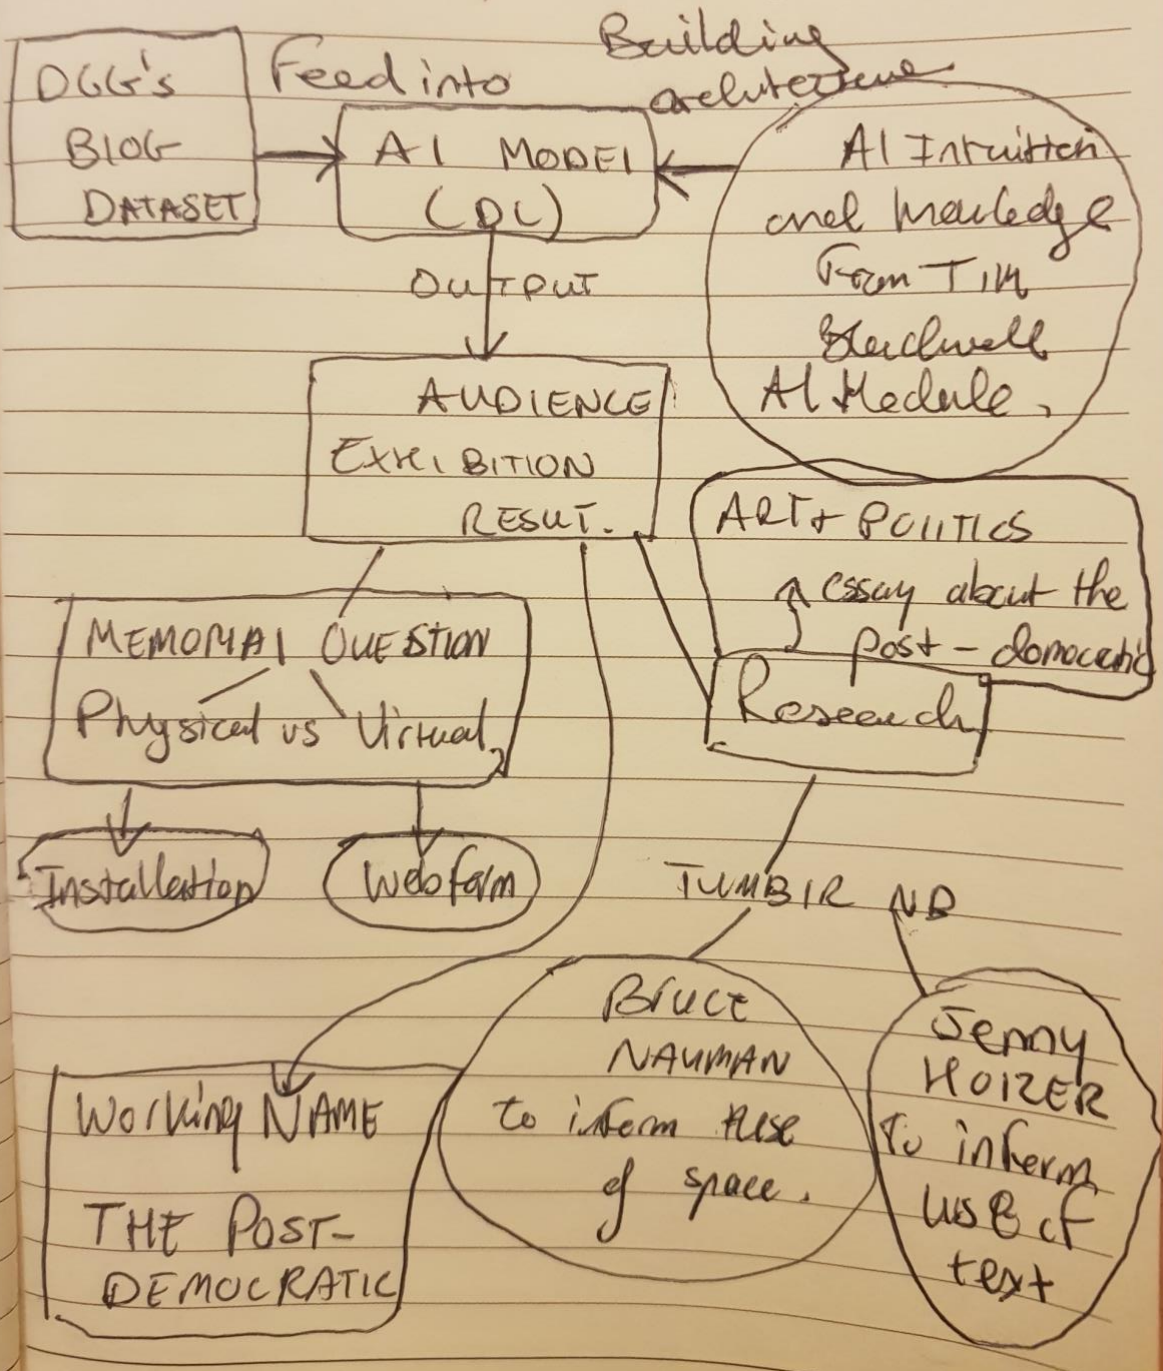 DGG's
BLOG
DATASET
Feed into
Building
architecture
AI MODEL
(DL)
AI Intuition
and knowledge
From Tim
Blackwell
AI Module.
OUTPUT
AUDIENCE
EXHIBITION
RESUT.
ART + POLITICS
essay about the
post-domocratic
Research
MEMORIAL QUESTION
Physical vs Virtual
Installation
Web form
TUMBLR NB
Bruce
NAUMAN
to inform use
of space.
Jenny
HOLZER
To inform
use of
text
Working NAME
THE POST-
DEMOCRATIC